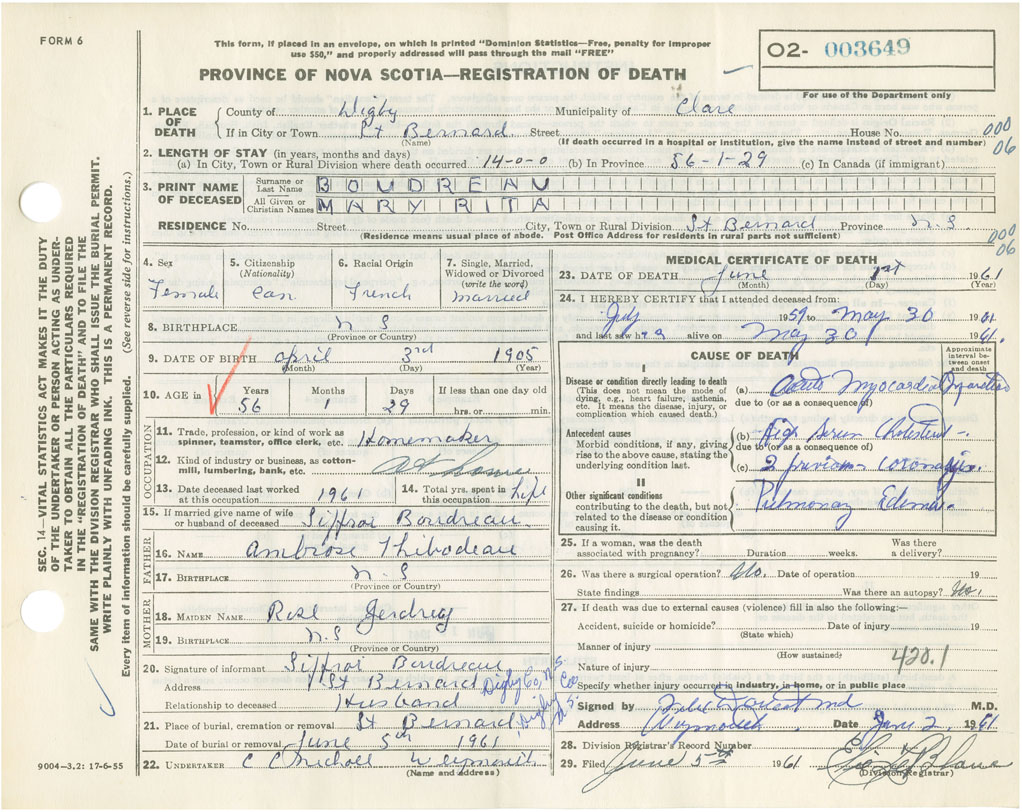 FORM 6
This form, if placed in an envelope, on which is printed "Dominion Statistics—Free, penalty for improper
use $50," and properly addressed will pass through the mail "FREE"
PROVINCE OF NOVA SCOTIA—REGISTRATION OF DEATH
O2- 003649
For use of the Department only
1. PLACE OF DEATH
County of Digby Municipality of Clare
If in City or Town St Bernard Street House No.
(Name) (If death occurred in a hospital or institution, give the name instead of street and number)
000
06
2. LENGTH OF STAY (in years, months and days)
(a) In City, Town or Rural Division where death occurred 14-0-0 (b) In Province 56-1-29 (c) In Canada (if immigrant)
3. PRINT NAME OF DECEASED
Surname or Last Name BOUDREAU
All Given or Christian Names MARY RITA
RESIDENCE No. Street City, Town or Rural Division St Bernard Province N S
(Residence means usual place of abode. Post Office Address for residents in rural parts not sufficient)
000
06
4. Sex
Female
5. Citizenship
(Nationality)
Can.
6. Racial Origin
French
7. Single, Married, Widowed or Divorced
(write the word)
Married
8. BIRTHPLACE N S
(Province or Country)
9. DATE OF BIRTH April 3rd 1905
(Month) (Day) (Year)
10. AGE in
Years Months Days If less than one day old
56 1 29 hrs. or min.
OCCUPATION
11. Trade, profession, or kind of work as spinner, teamster, office clerk, etc. Homemaker
12. Kind of industry or business, as cotton-mill, lumbering, bank, etc. at home
13. Date deceased last worked at this occupation 1961
14. Total yrs. spent in this occupation Life
15. If married give name of wife or husband of deceased Siffroi Boudreau
FATHER
16. NAME Ambrose Thibodeau
17. BIRTHPLACE N. S
(Province or Country)
MOTHER
18. MAIDEN NAME Rose
19. BIRTHPLACE N. S
(Province or Country)
20. Signature of informant Siffroi Boudreau
Address St Bernard Digby Co, N. S.
Relationship to deceased Husband
21. Place of burial, cremation or removal St Bernard Digby Co N S.
Date of burial or removal June 5th 1961
22. UNDERTAKER C C Nicholl Weymouth
(Name and address)
9004-3.2: 17-6-55
MEDICAL CERTIFICATE OF DEATH
23. DATE OF DEATH June 1st 1961
(Month) (Day) (Year)
24. I HEREBY CERTIFY that I attended deceased from:
July 1959 to May 30 1961
and last saw her alive on May 30 1961.
CAUSE OF DEATH
Approximate interval between onset and death
I
Disease or condition directly leading to death
This does not mean the mode of dying, e.g., heart failure, asthenia, etc. It means the disease, injury, or complication which caused death.
(a) Acute Myocardial Infarction
due to (or as a consequence of)
Antecedent causes
Morbid conditions, if any, giving rise to the above cause, stating the underlying condition last.
(b) High Serum Cholesterol
due to (or as a consequence of)
(c) 2 previous coronaries.
II
Other significant conditions
contributing to the death, but not related to the disease or condition causing it.
Pulmonary Edema
25. If a woman, was the death associated with pregnancy? Duration weeks. Was there a delivery?
26. Was there a surgical operation? No. Date of operation 19
State findings Was there an autopsy? No.
27. If death was due to external causes (violence) fill in also the following:—
Accident, suicide or homicide? Date of injury 19
(State which)
Manner of injury
(How sustained)
420.1
Nature of injury
Specify whether injury occurred in industry, in home, or in public place
Signed by M.D.
Address Weymouth Date June 2 1961
28. Division Registrar's Record Number
29. Filed June 5th 1961
(Division Registrar)
SEC. 14—VITAL STATISTICS ACT MAKES IT THE DUTY
OF THE UNDERTAKER OR PERSON ACTING AS UNDER-
TAKER TO OBTAIN ALL THE PARTICULARS REQUIRED
IN THE "REGISTRATION OF DEATH" AND TO FILE THE
SAME WITH THE DIVISION REGISTRAR WHO SHALL ISSUE THE BURIAL PERMIT.
WRITE PLAINLY WITH UNFADING INK. THIS IS A PERMANENT RECORD.
Every item of information should be carefully supplied. (See reverse side for instructions.)